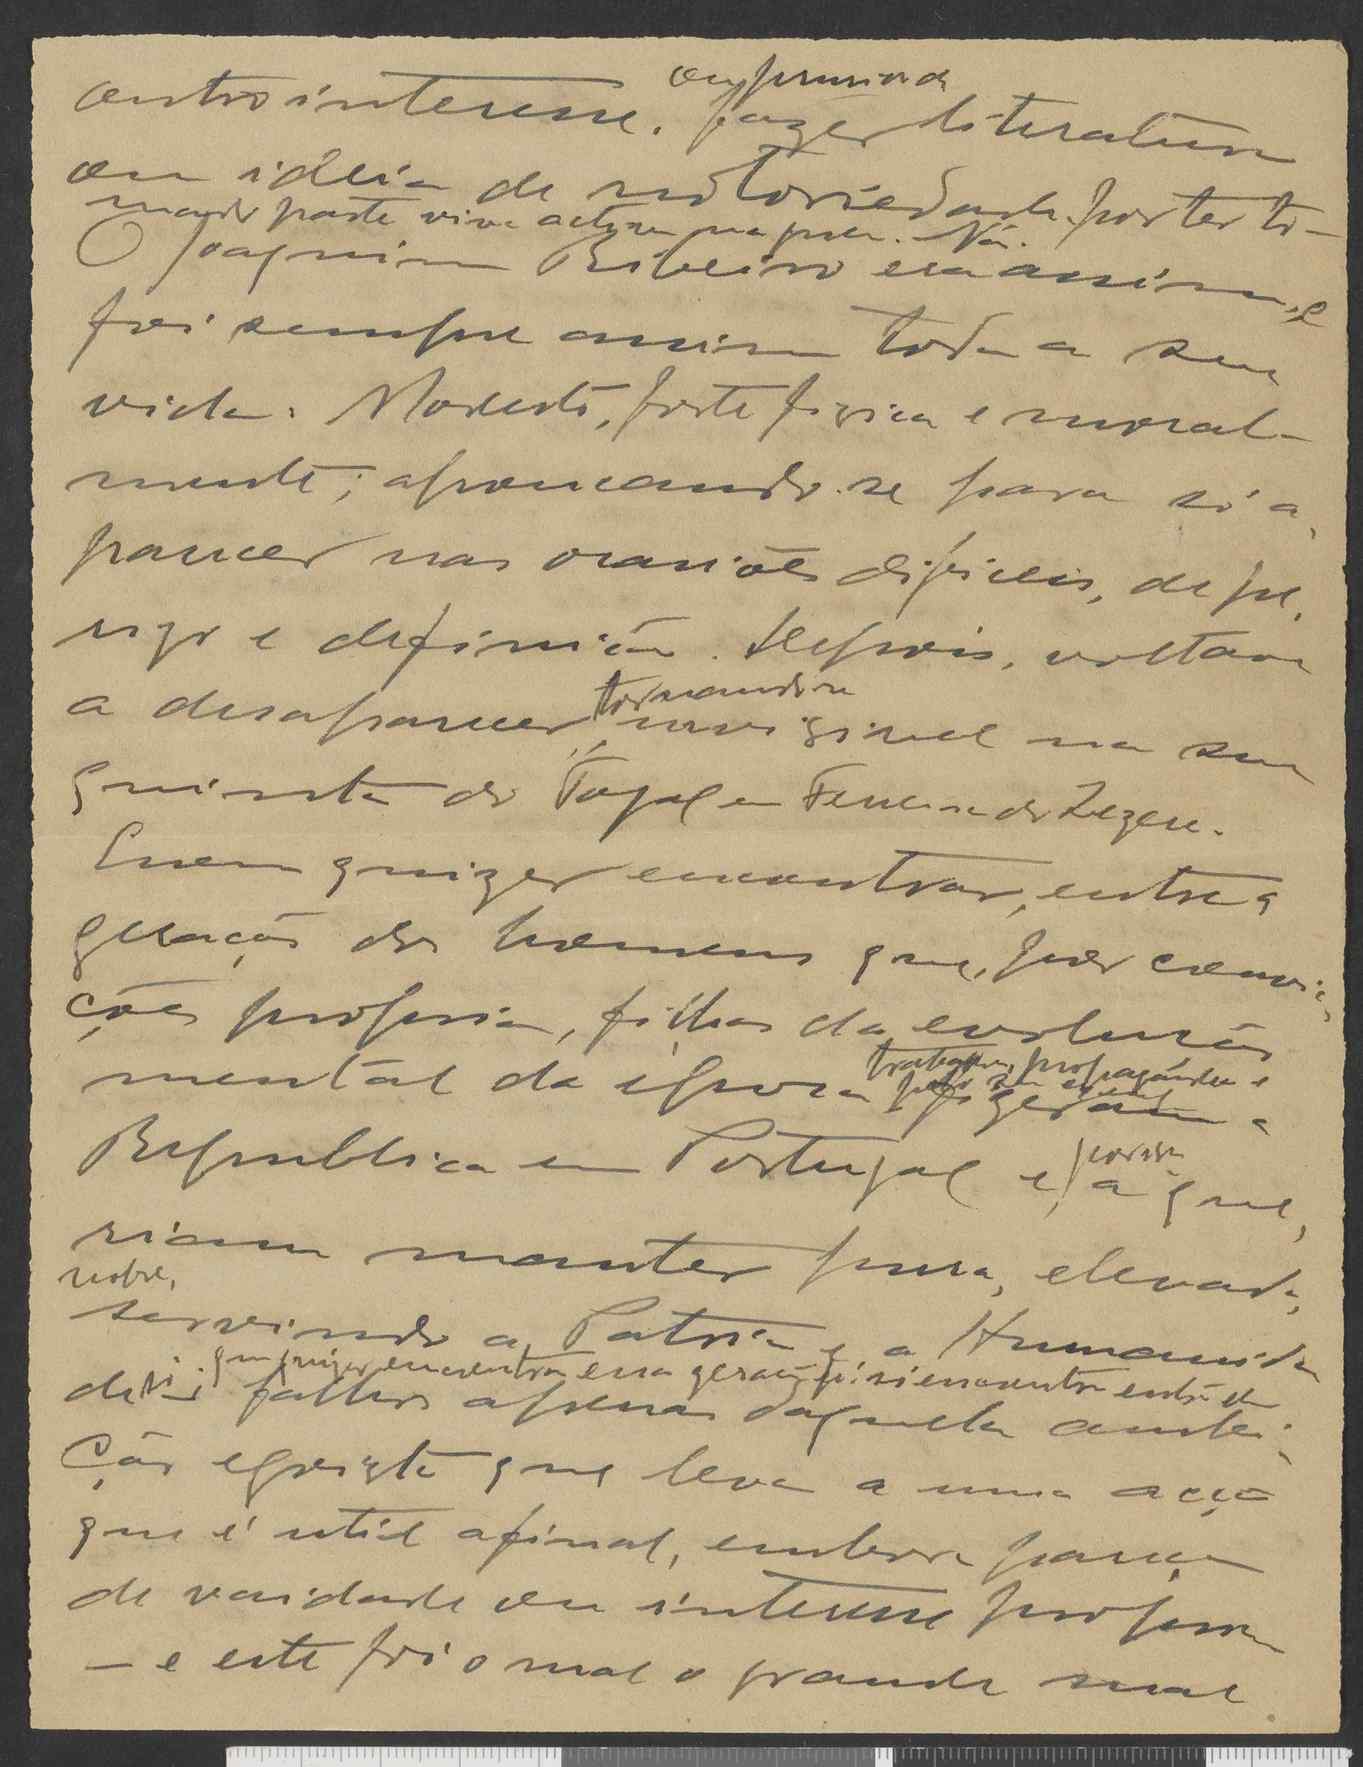 outro interesse. fazer literatura
ou ideia de notoriedade por ter to-
mado parte viva activa na
O Joaquim Ribeiro era assim, e
foi sempre assim toda a sua
vida. Modesto, forte fizica e moral-
mente; apoucando-se para só a-
parecer nas ocasiões dificeis, de pe-
rigo e definição. Depois, voltava
a desaparecer tornando-se
invizivel na sua
quinta do Togal em Ferreira do Zezere.
Quem quizer encontrar, entre a
geração dos homens que, por convi-
ções propria, filhas da evolução
mental da epoca
trabalho, propaganda e
fizeram a
Republica em Portugal e, por isso
a que-
riam manter pura, elevada,
nobre,
servindo a Patria e a Humanida-
de
si. quem quizer encontrar essa geração si encontra entre ela
falhos apenas daquela ambi-
ção egoista que leva a uma acção
que é util afinal, embora pareça
de vaidade ou interesse proprio
— e este foi o mal o grande mal